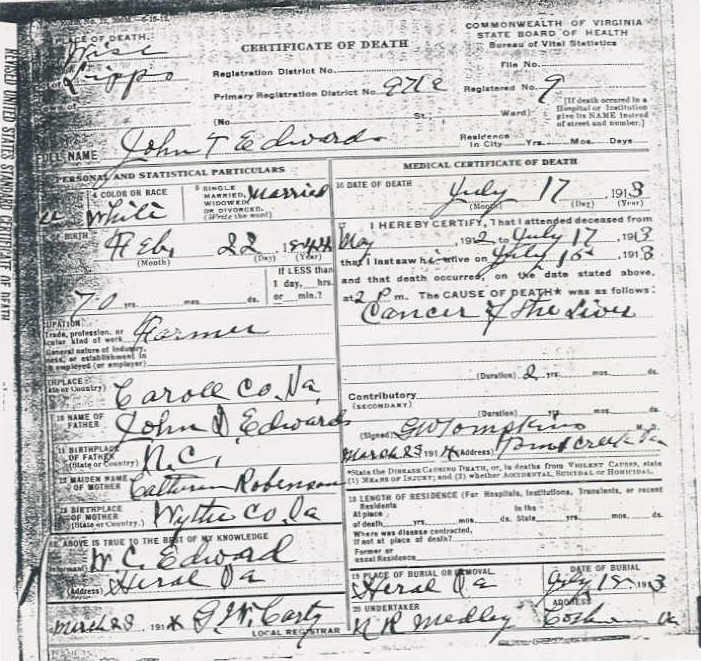 COMMONWEALTH OF VIRGINIA
STATE BOARD OF HEALTH
Bureau of Vital Statistics
PLACE OF DEATH.
Wise
Lipps
CERTIFICATE OF DEATH
File No.
Registration District No.
Primary Registration District No. 97
Registered No. 9
(No St.; Ward)
[If death occured in a
Hospital or Institution
give its NAME instead
of street and number.]
Residence
In City Yrs. Mos. Days
FULL NAME John T Edwards
PERSONAL AND STATISTICAL PARTICULARS
4 COLOR OR RACE
White
5 SINGLE
MARRIED,
WIDOWED
OR DIVORCED.
(Write the word)
Married
BIRTH
Feb 22
(Month) (Day) (Year)
70 yrs. mos. ds.
If LESS than
1 day, hrs.
or min.?
Trade, profession, or
kind of work Farmer
General nature of industry,
or establishment in
employed (or employer)
(State or Country) Caroll Co. Va
10 NAME OF
FATHER
John D. Edwards
11 BIRTHPLACE
OF FATHER
(State or Country)
N.C.,
12 MAIDEN NAME
OF MOTHER Robinson
13 BIRTHPLACE
OF MOTHER
(State or Country.)
Wythe Co. Va
ABOVE IS TRUE TO THE BEST OF MY KNOWLEDGE
W. C. Edward
(Address) Va
March 28 191
LOCAL REGISTRAR
MEDICAL CERTIFICATE OF DEATH
16 DATE OF DEATH
July 17, 1913
(Month) (Day) (Year)
I HEREBY CERTIFY, That I attended deceased from
May, 1912 to July 17, 1913
that I last saw him alive on July 15 1913
and that death occurred, on the date stated above,
at 2 P m. The CAUSE OF DEATH★ was as follows:
Cancer of the Liver
(Duration) 2 yrs. mos. ds.
Contributory
(SECONDARY)
(Duration) yrs. mos. ds.
(Signed) G W Tompkins M. D.
March 28 191 (Address) Va
*State the DISEASE CAUSING DEATH, or, in deaths from VIOLENT CAUSES, state
(1) MEANS OF INJURY; and (2) whether ACCIDENTAL, SUICIDAL or HOMICIDAL.
18 LENGTH OF RESIDENCE (For Hospitals, Institutions, Transients, or recent
Residents
At place In the
of death yrs. mos. ds. State yrs. mos. ds.
Where was disease contracted,
if not at place of death?
Former or
usual Residence
19 PLACE OF BURIAL OR REMOVAL
DATE OF BURIAL
Va July 18 1913
20 UNDERTAKER
ADDRESS
N R Medley Va
REVISED UNITED STATES STANDARD CERTIFICATE OF DEATH